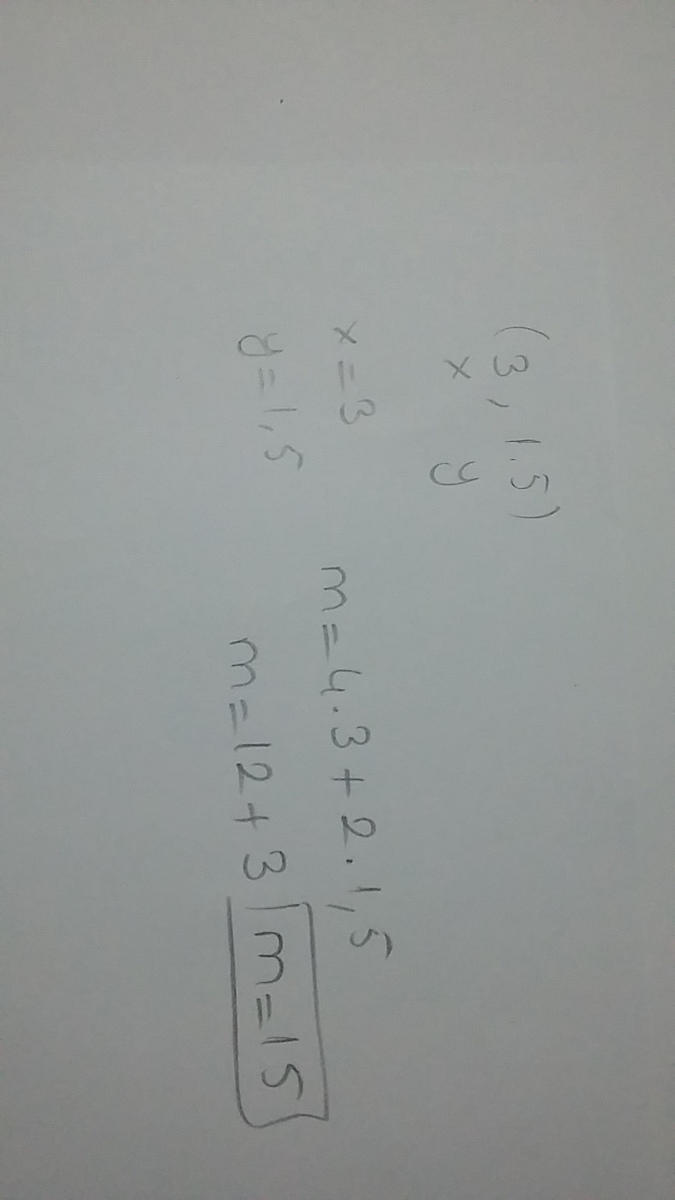 (3, 1.5)
x y
x=3
y=1,5
m=4.3+2.1,5
m=12+3
m=15